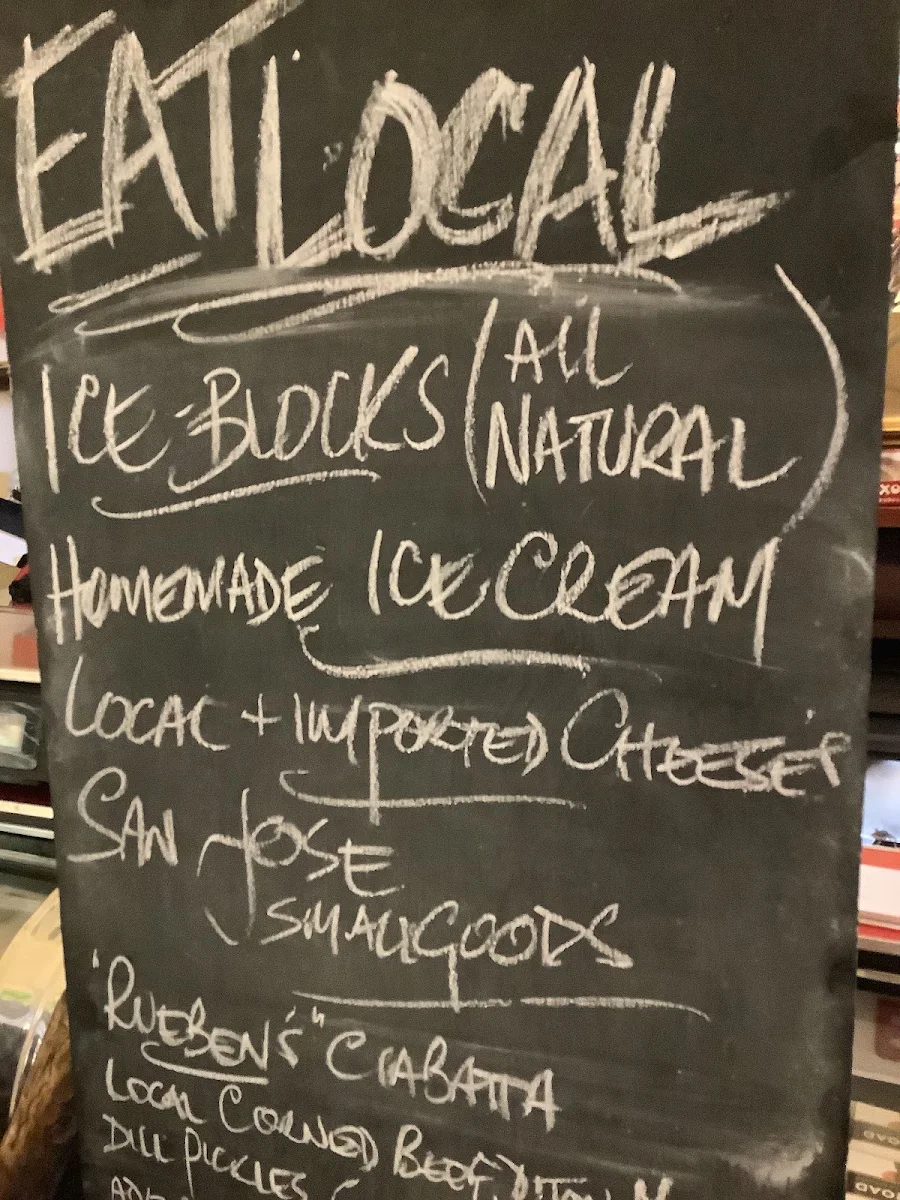 EAT LOCAL
ICE-BLOCKS (ALL
NATURAL)
HOMEMADE ICE CREAM
LOCAL + IMPORTED CHEESES
SAN JOSE
SMALLGOODS
'RUEBEN'S" CIABATTA
LOCAL CORNED BEEF,
DILL PICKLES